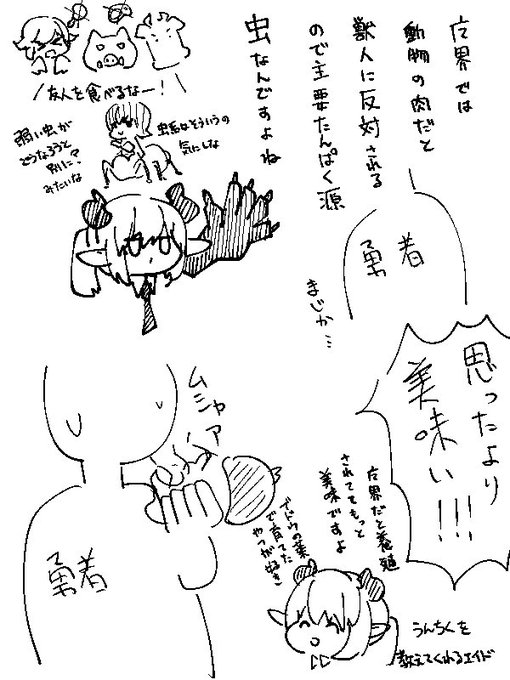 魔界では
動物の肉だと
獣人に反対される
ので主要たんぱく源
虫なんですよね
友人を食べるなー!
虫系はそういうの
気にしな
弱い虫が
どうなろうと
別に?
みたいな
勇者
まじか…
思ったより
美味い!!!
ムシャア
勇者
魔界だと養殖
されててもっと
美味ですよ
で育てた
やつが好き
うんちくを
教えてくれるエイド